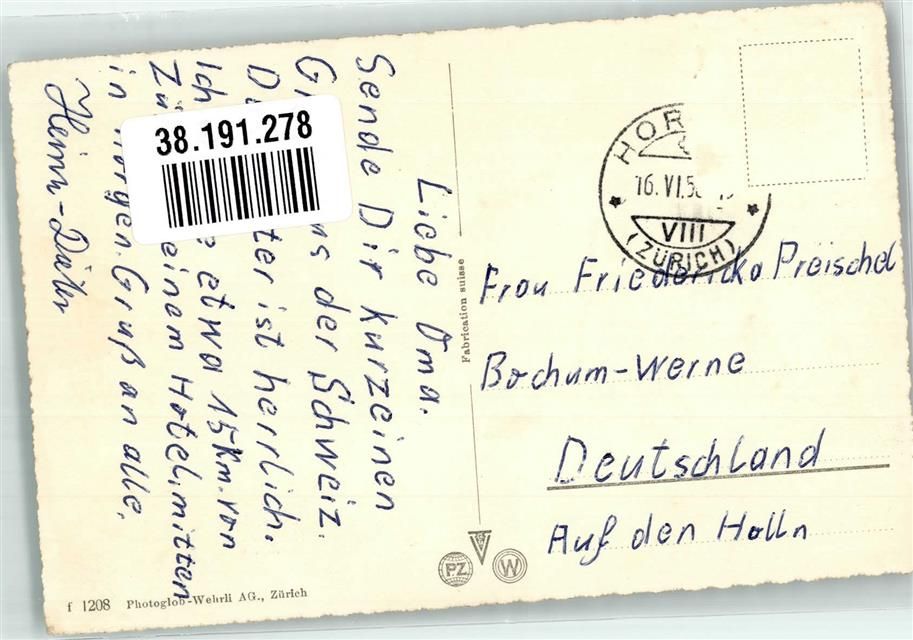 Liebe Oma.
Sende Dir kurzeinen
der Schweiz.
ist herrlich.
Ich etwa 15km. von
einem Hotel, mitten
in Gruß an alle.
Heinz-Dieter
38.191.278
Fabrication suisse
HOR
16.VI.5
VIII
(ZÜRICH)
Frau Friedericka Preischel
Bochum-Werne
Deutschland
Auf den Holln
PZ
W
f 1208 Photoglob-Wehrli AG., Zürich